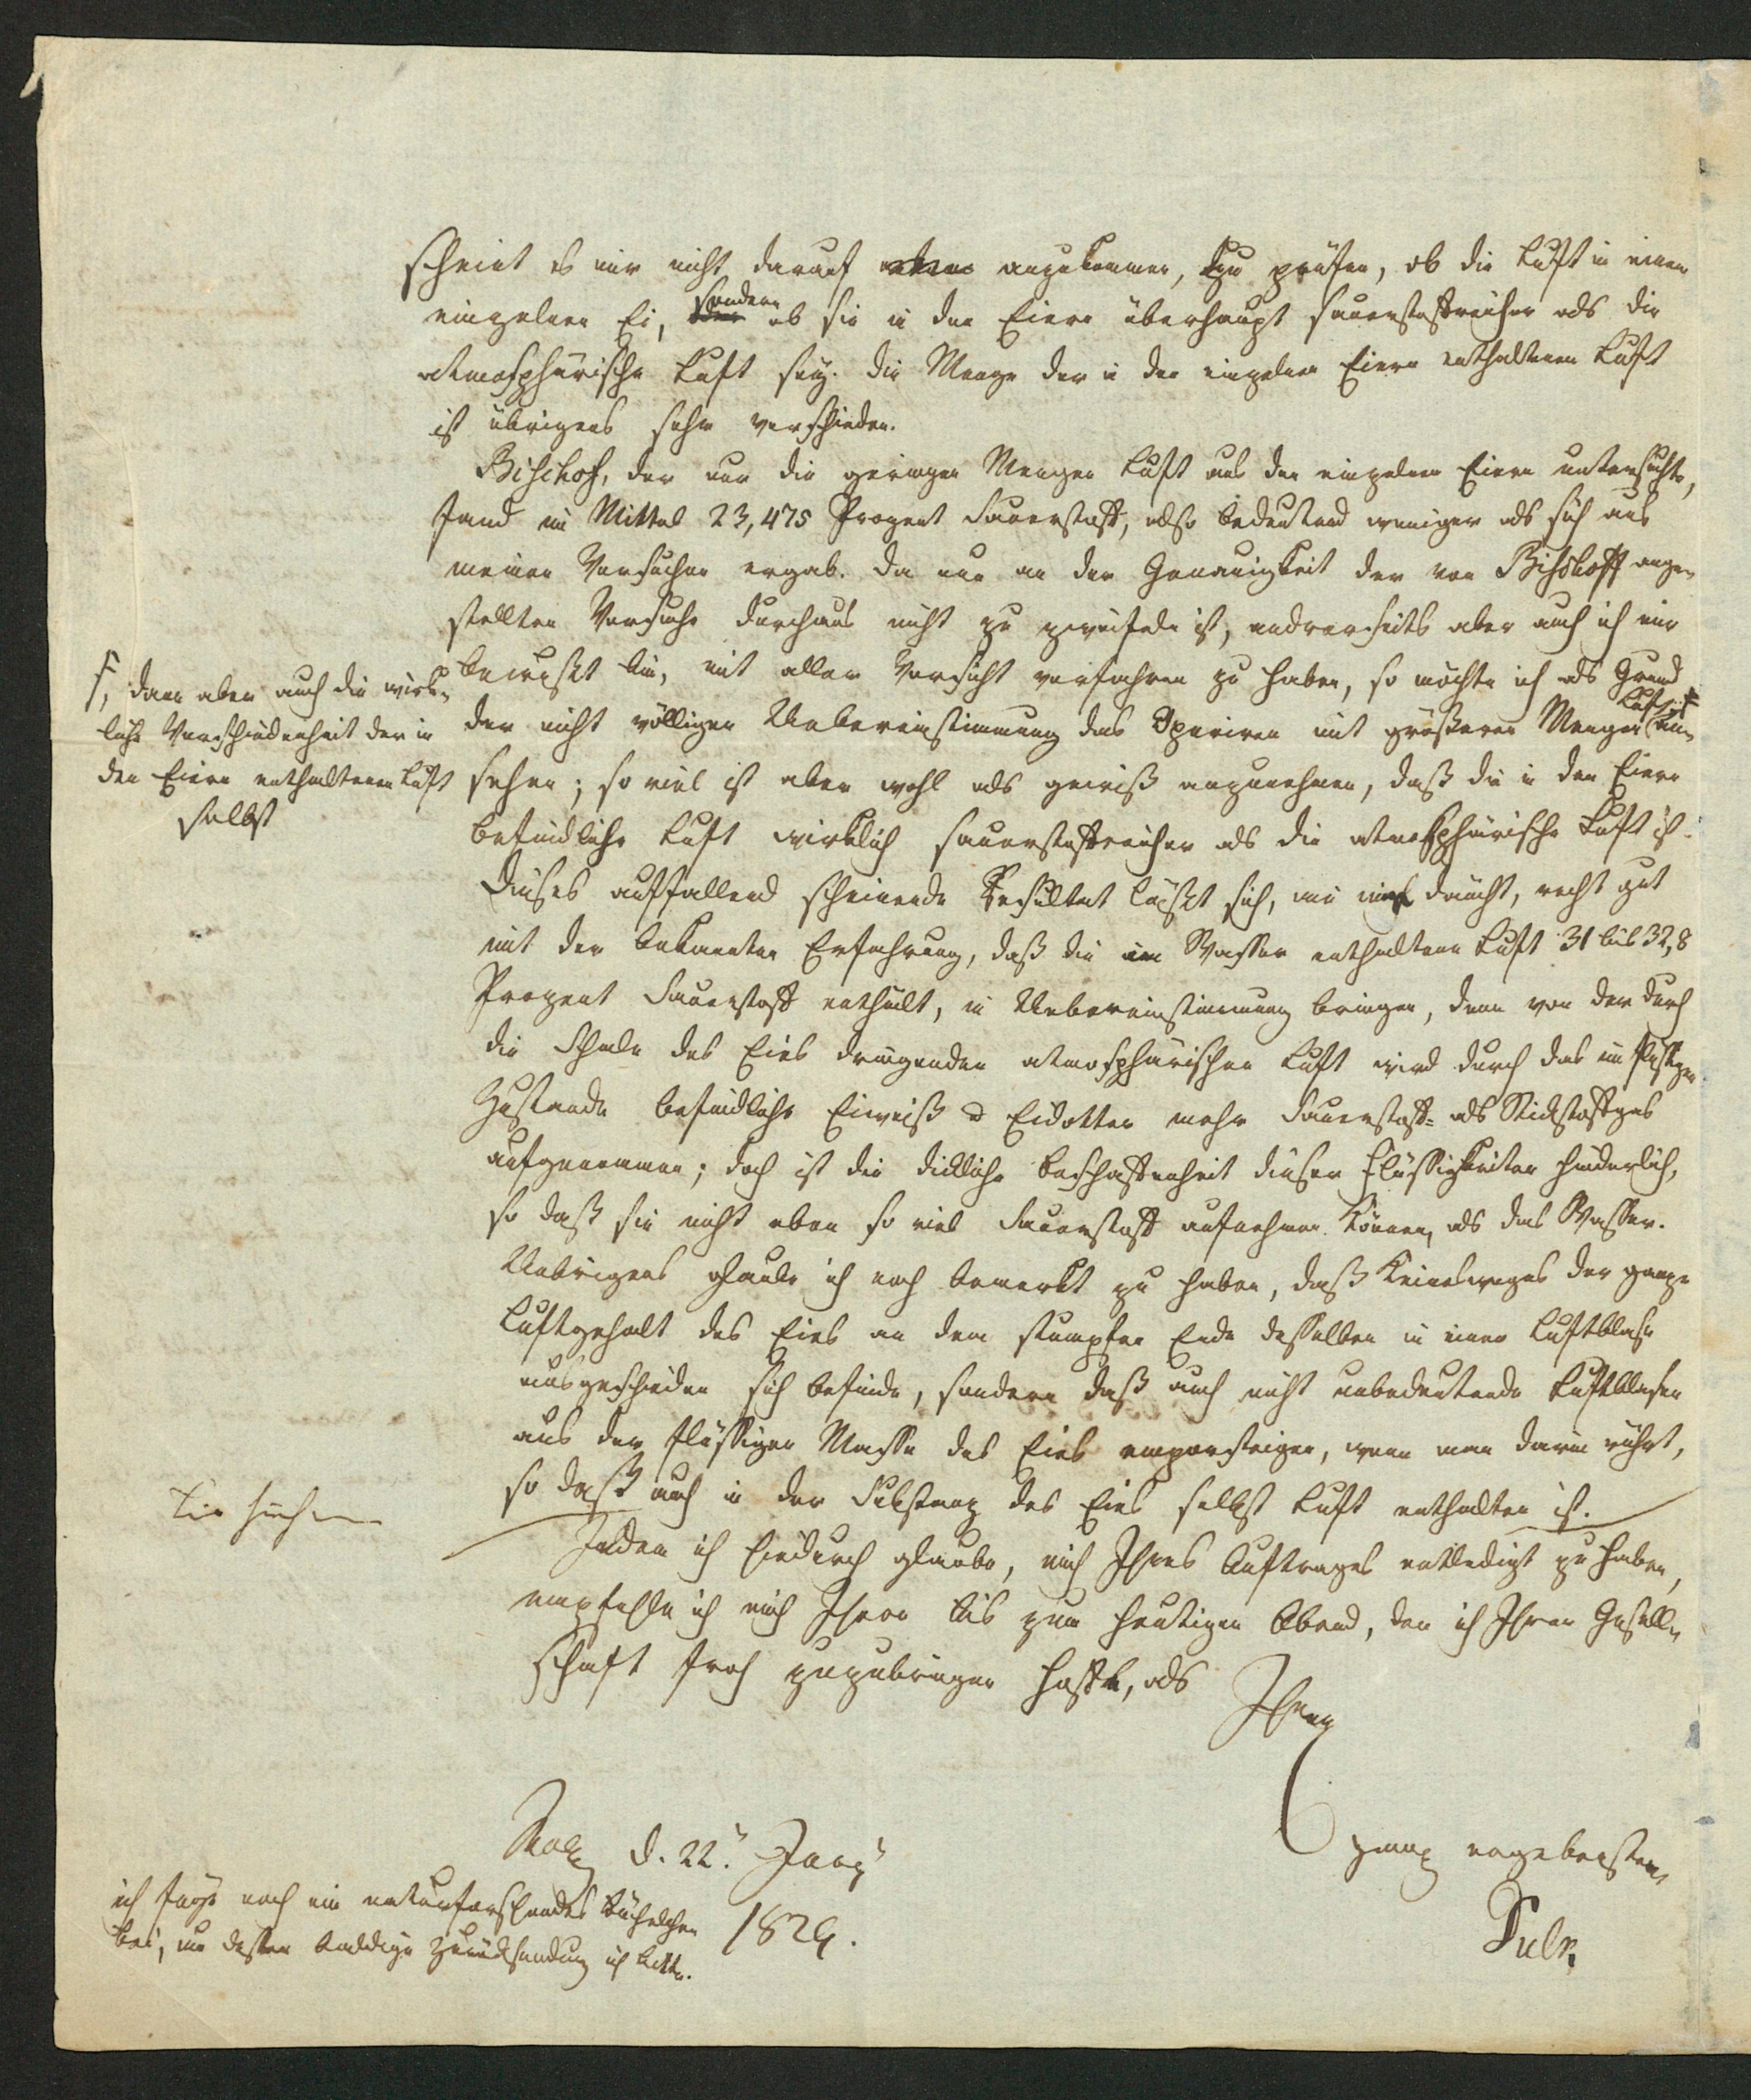 scheint es mir nicht darauf anzukommen, zu prüfen, ob die Luft in einem
einzelnen Ei, sondern ob sie in den Eiern überhaupt sauerstoffreicher als die
atmosphärische Luft sey. Die Menge der in den einzelnen Eiern enthaltenen Luft
ist übrigens sehr verschieden.
Bischof, der nur die geringen Mengen Luft aus den einzelnen Eiern untersuchte,
fand im Mittel 23,475 Prozent Sauerstoff, also bedeutend weniger als sich aus
meinen Versuchen ergab. Da nun an der Genauigkeit der von Bischoff ange-
stellten Versuche durchaus nicht zu zweifeln ist, andrerseits aber auch ich mir
bewußt bin, mit aller Vorsicht verfahren zu haben, so möchte ich als Grund
der nicht völligen Uebereinstimmung das Operiren mit größeren Mengen Luft ƒ an-
sehen; so viel ist aber wohl als gewiß anzunehmen, daß die in den Eiern
befindliche Luft wirklich sauerstoffreicher als die atmosphärische Luft ist.
Dieses auffallend scheinende Resultat läßt sich, wie mich däucht, recht gut
mit der bekannten Erfahrung, daß die im Wasser enthaltene Luft 31 bis 32,8
Prozent Sauerstoff enthält, in Uebereinstimmung bringen, denn von der durch
die Schale des Eies dringenden atmosphärischen Luft wird durch das im flüssigen
Zustande befindliche Eiweiß u Eidotter mehr Sauerstoff- als Stickstoffgas
aufgenommen; doch ist die dickliche Beschaffenheit dieser Flüssigkeiten hinderlich,
so daß sie nicht eben so viel Sauerstoff aufnehmen können, als das Wasser.
Uebrigens glaube ich noch bemerkt zu haben, daß keinesweges der ganze
Luftgehalt des Eies an dem stumpfen Ende desselben in einer Luftblase
ausgeschieden sich befinde, sondern daß auch nicht unbedeutende Luftblasen
aus der flüssigen Masse des Eies emporsteigen, wenn man darin rührt,
so daß auch in der Substanz des Eies selbst Luft enthalten ist.
Indem ich hiedurch glaube, mich Ihres Auftrages entledigt zu haben,
empfehle ich mich Ihnen bis zum heutigen Abend, den ich Ihrer Gesell-
schaft froh zuzubringen hoffe, als
Ihren
ganz ergebensten
Dulk
d. 22. Jany
1829.
ƒ, dann aber auch die wirk-
liche Verschiedenheit der in
den Eiern enthaltenen Luft
selbst
ich füge noch ein naturforschendes Büchelchen
bei, um dessen baldige Zurücksendung ich bitte.